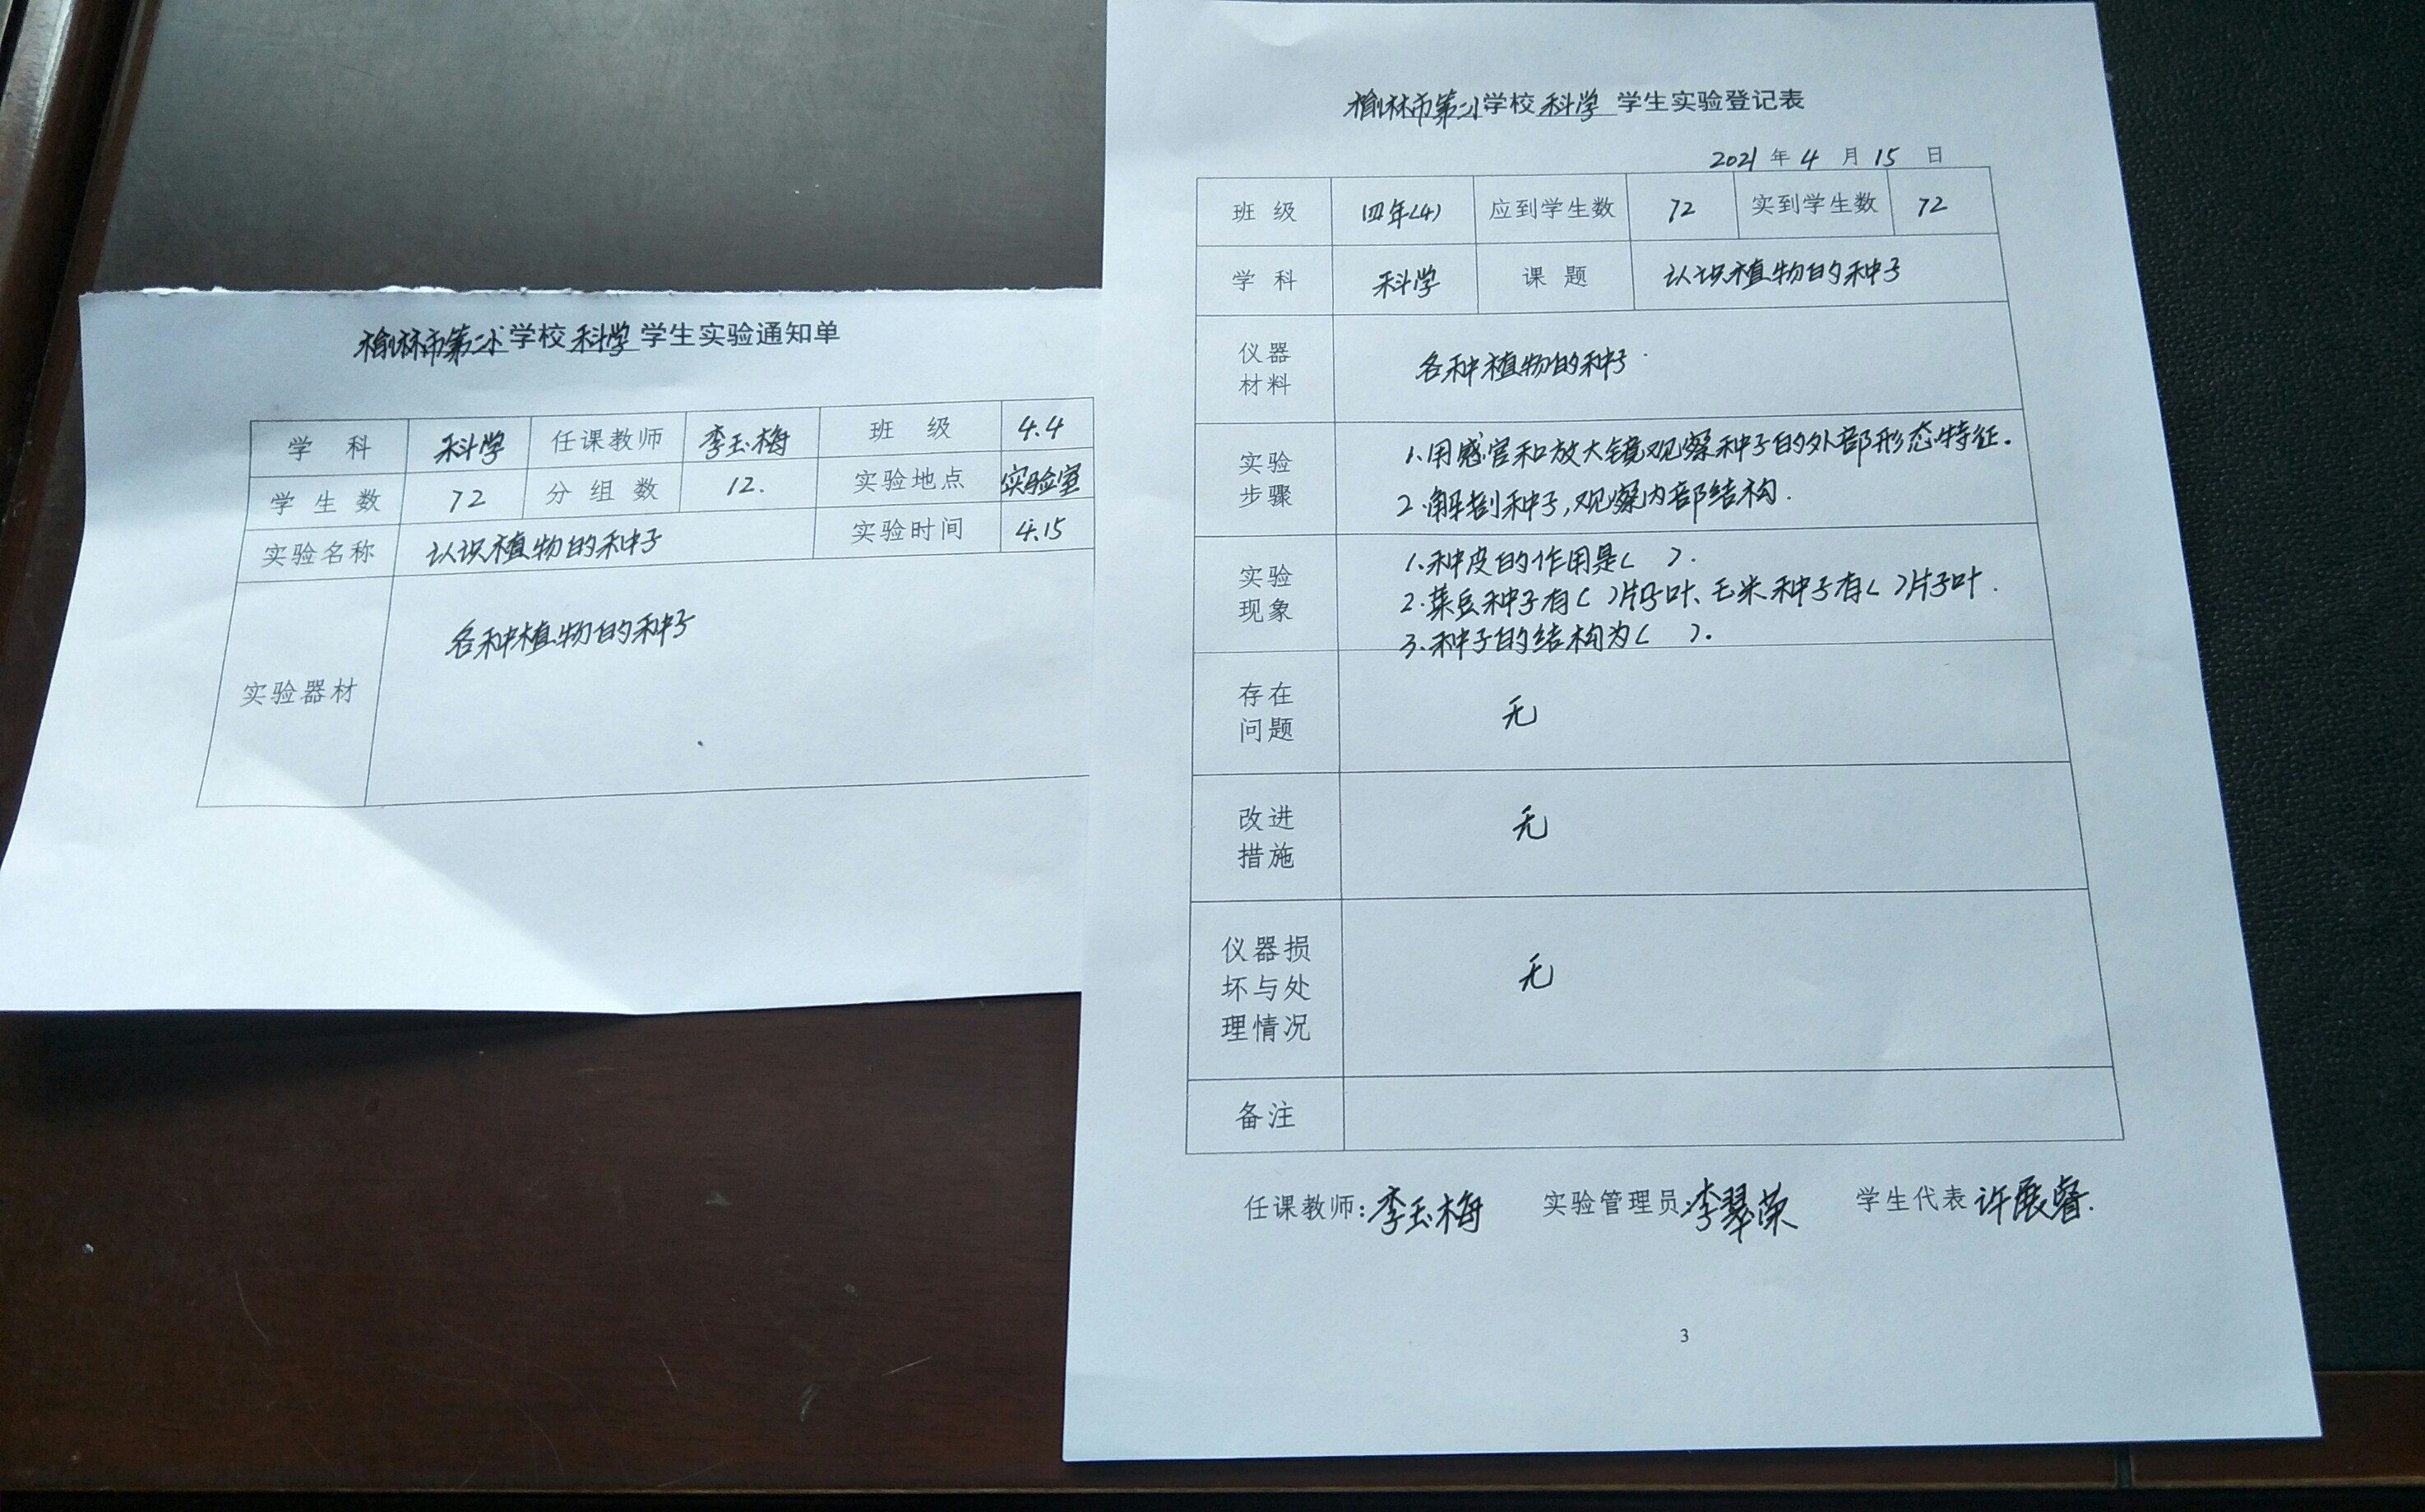 榆林市第二小学校科学学生实验通知单
学科 科学 任课教师 李玉梅 班级 4.4
学生数 72 分组数 12. 实验地点 实验室
实验名称 认识植物的种子 实验时间 4.15
实验器材 各种植物的种子
榆林市第二小学校科学学生实验登记表
2021年4月15日
班级 四年(4) 应到学生数 72 实到学生数 72
学科 科学 课题 认识植物的种子
仪器材料 各种植物的种子.
实验步骤 1.用感官和放大镜观察种子的外部形态特征.
2.解剖种子,观察内部结构.
实验现象 1.种皮的作用是( ).
2.菜豆种子有( )片子叶、玉米种子有( )片子叶.
3.种子的结构为( ).
存在问题 无
改进措施 无
仪器损坏与处理情况 无
备注
任课教师:李玉梅 实验管理员:李翠荣 学生代表 许展睿.
3